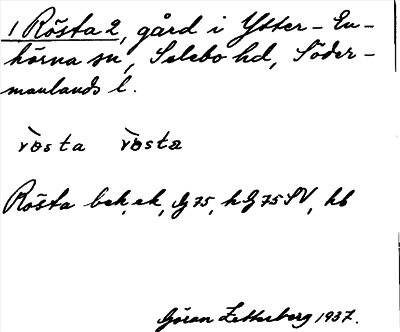 1 Rösta 2, gård i Ytter-En-
hörna sn, Selebo hd, Söder-
manlands l.
rösta rösta
Rösta bek, ek, G75, hG75SV, hb
Göran Zetterberg 1937.